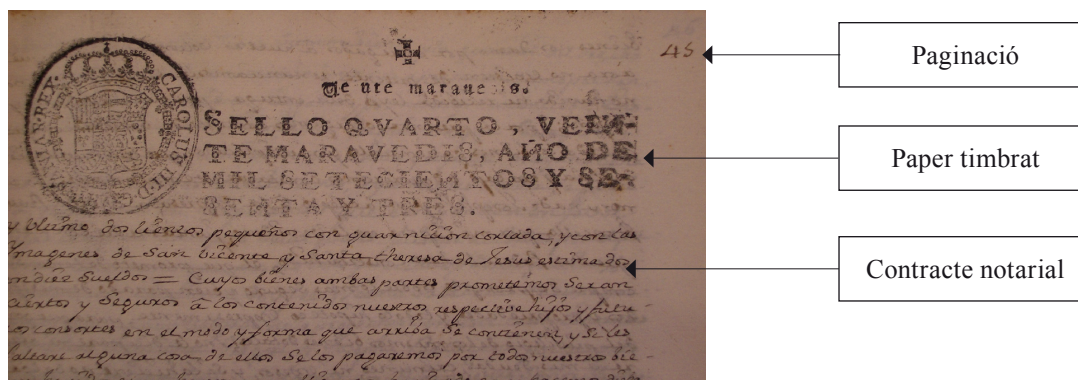 45
Paginació
Veinte maravedis.
SELLO QVARTO, VEIN-
TE MARAVEDIS, AÑO DE
MIL SETECIENTOS Y SE-
SENTA Y TRES.
CAROLUS III D G HISPANIAR REX
Paper timbrat
y Ultimo dos lienzos pequeños con guarnicion cortada, y con las
Imagenes de San Vicente y Santa theresa de Jesus estimados
en diez Sueldos = Cuyos bienes ambas partes prometemos Seran
ciertos y Seguros â los contenidos nuestros respective hijos y futu
ros consortes en el modo y forma que arriba Se contienen, y Si les
faltare alguna cosa de ellos Se los pagaremos por todos nuestros bie-
Contracte notarial